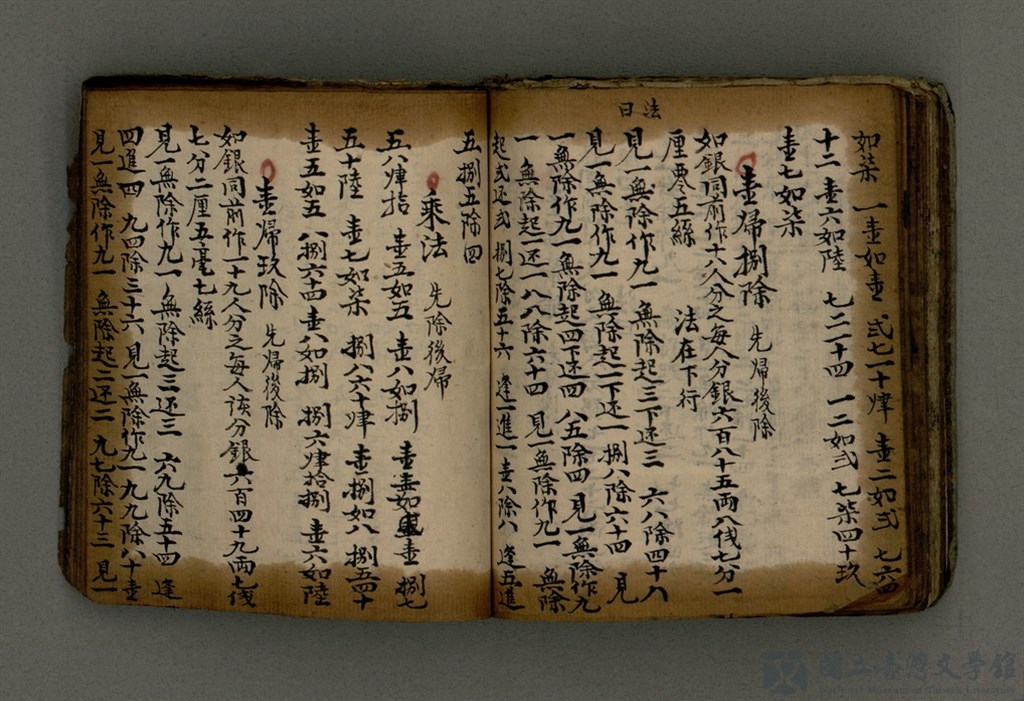 法曰
如柒 一壹如壹 弍七一十肆 壹二如弍 七六四
十二 壹六如陸 七二十四 一二如弍 七柒四十玖
壹七如柒
壹歸捌除 先歸後除
如銀同前作十八人分之每人分銀六百八十五両八伐七分一
厘零五絲 法在下行
見一無除作九一 無除起三下还三 六八除四十八
見一無除作九一 無除起一下还一 捌八除六十四 見
一無除作九一無除起四下还四 八五除四 見一無除作九
一 無除起一还一 八八除六十四 見一無除作九一 無除
起弍还弍 捌七除五十六 逢一進一 壹八除八 逢五進
五 捌五除四
乘法 先除後歸
五八肆拾 壹五如五 壹八如捌 壹壹如壹 捌七
五十陸 壹七如柒 捌八六十肆 壹捌如八 捌五四十
壹五如五 八捌六十四 壹八如捌 捌六肆拾捌 壹六如陸
壹歸玖除 先歸後除
如銀同前作一十九人分之每人該分銀六百四十九両七伐
七分二厘五毫七絲
見一無除作九一 無除起三还三 六九除五十四 逢
四進四 九四除三十六 見一無除作九一 九九除八十壹
見一無除作九一 無除起二还二 九七除六十三 見一
國立臺灣文學館
National Museum of Taiwan Literature